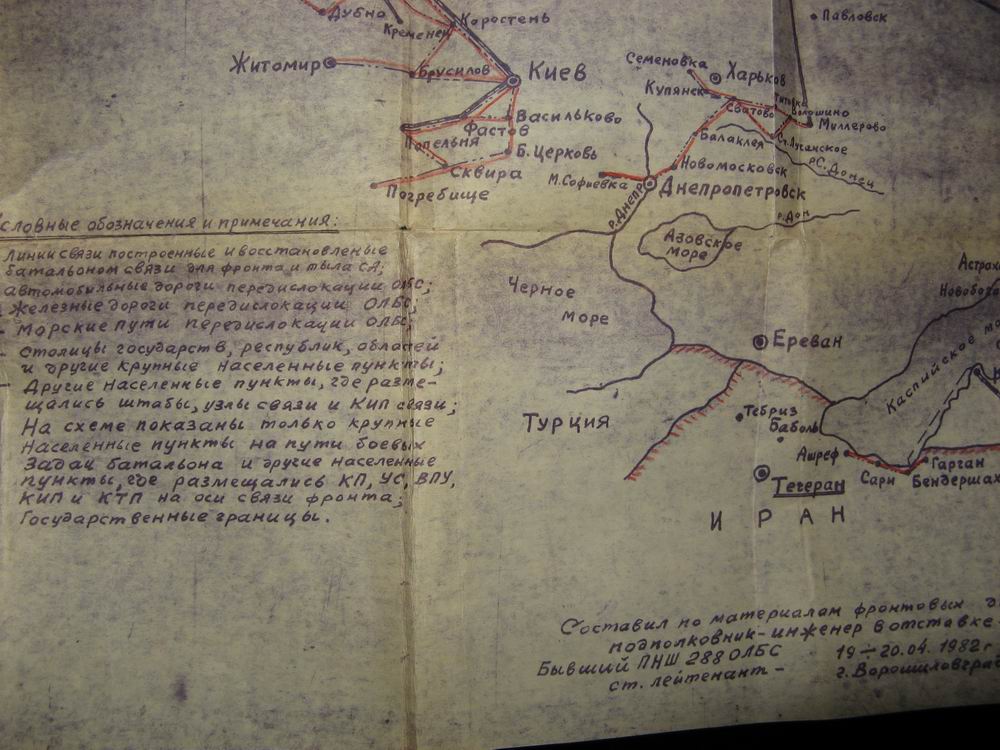 Дубно
Кременец
Коростень
Павловск
Житомир
Брусилов
Киев
Семеновка
Харьков
Купянск
Титовка
Сватово
Волошино
Миллерово
Васильково
Фастов
Попельня
Балаклея
Ст. Луганское
Б. Церковь
Сквира
Новомосковск
р. С. Донец
Погребище
М. Софиевка
Днепропетровск
р. Днепр
р. Дон
Азовское
море
Условные обозначения и примечания:
Линии связи построенные и восстановленые
батальоном связи для фронта и тыла СА;
автомобильные дороги передислокации ОЛБС;
Железные дороги передислокации ОЛБС;
Морские пути передислокации ОЛБС;
Столицы государств, республик, областей
и другие крупные населенные пункты;
Другие населенные пункты, где разме-
щались штабы, узлы связи и КИП связи;
На схеме показаны только крупные
населенные пункты на пути боевых
задач батальона и другие населенные
пункты, где размещались КП, УС, ВПУ,
КИП и КТП на оси связи фронта;
Государственные границы.
Черное
Море
Астрах
Новобога
Ереван
Каспийское мо
Турция
Тебриз
Баболь
Ашреф
Сари
Гарган
Бендершах
Тегеран
ИРАН
Составил по материалам фронтовых д
подполковник-инженер в отставке
Бывший ПНШ 288 ОЛБС 19÷20.04.1982г
ст. лейтенант - г. Ворошиловград